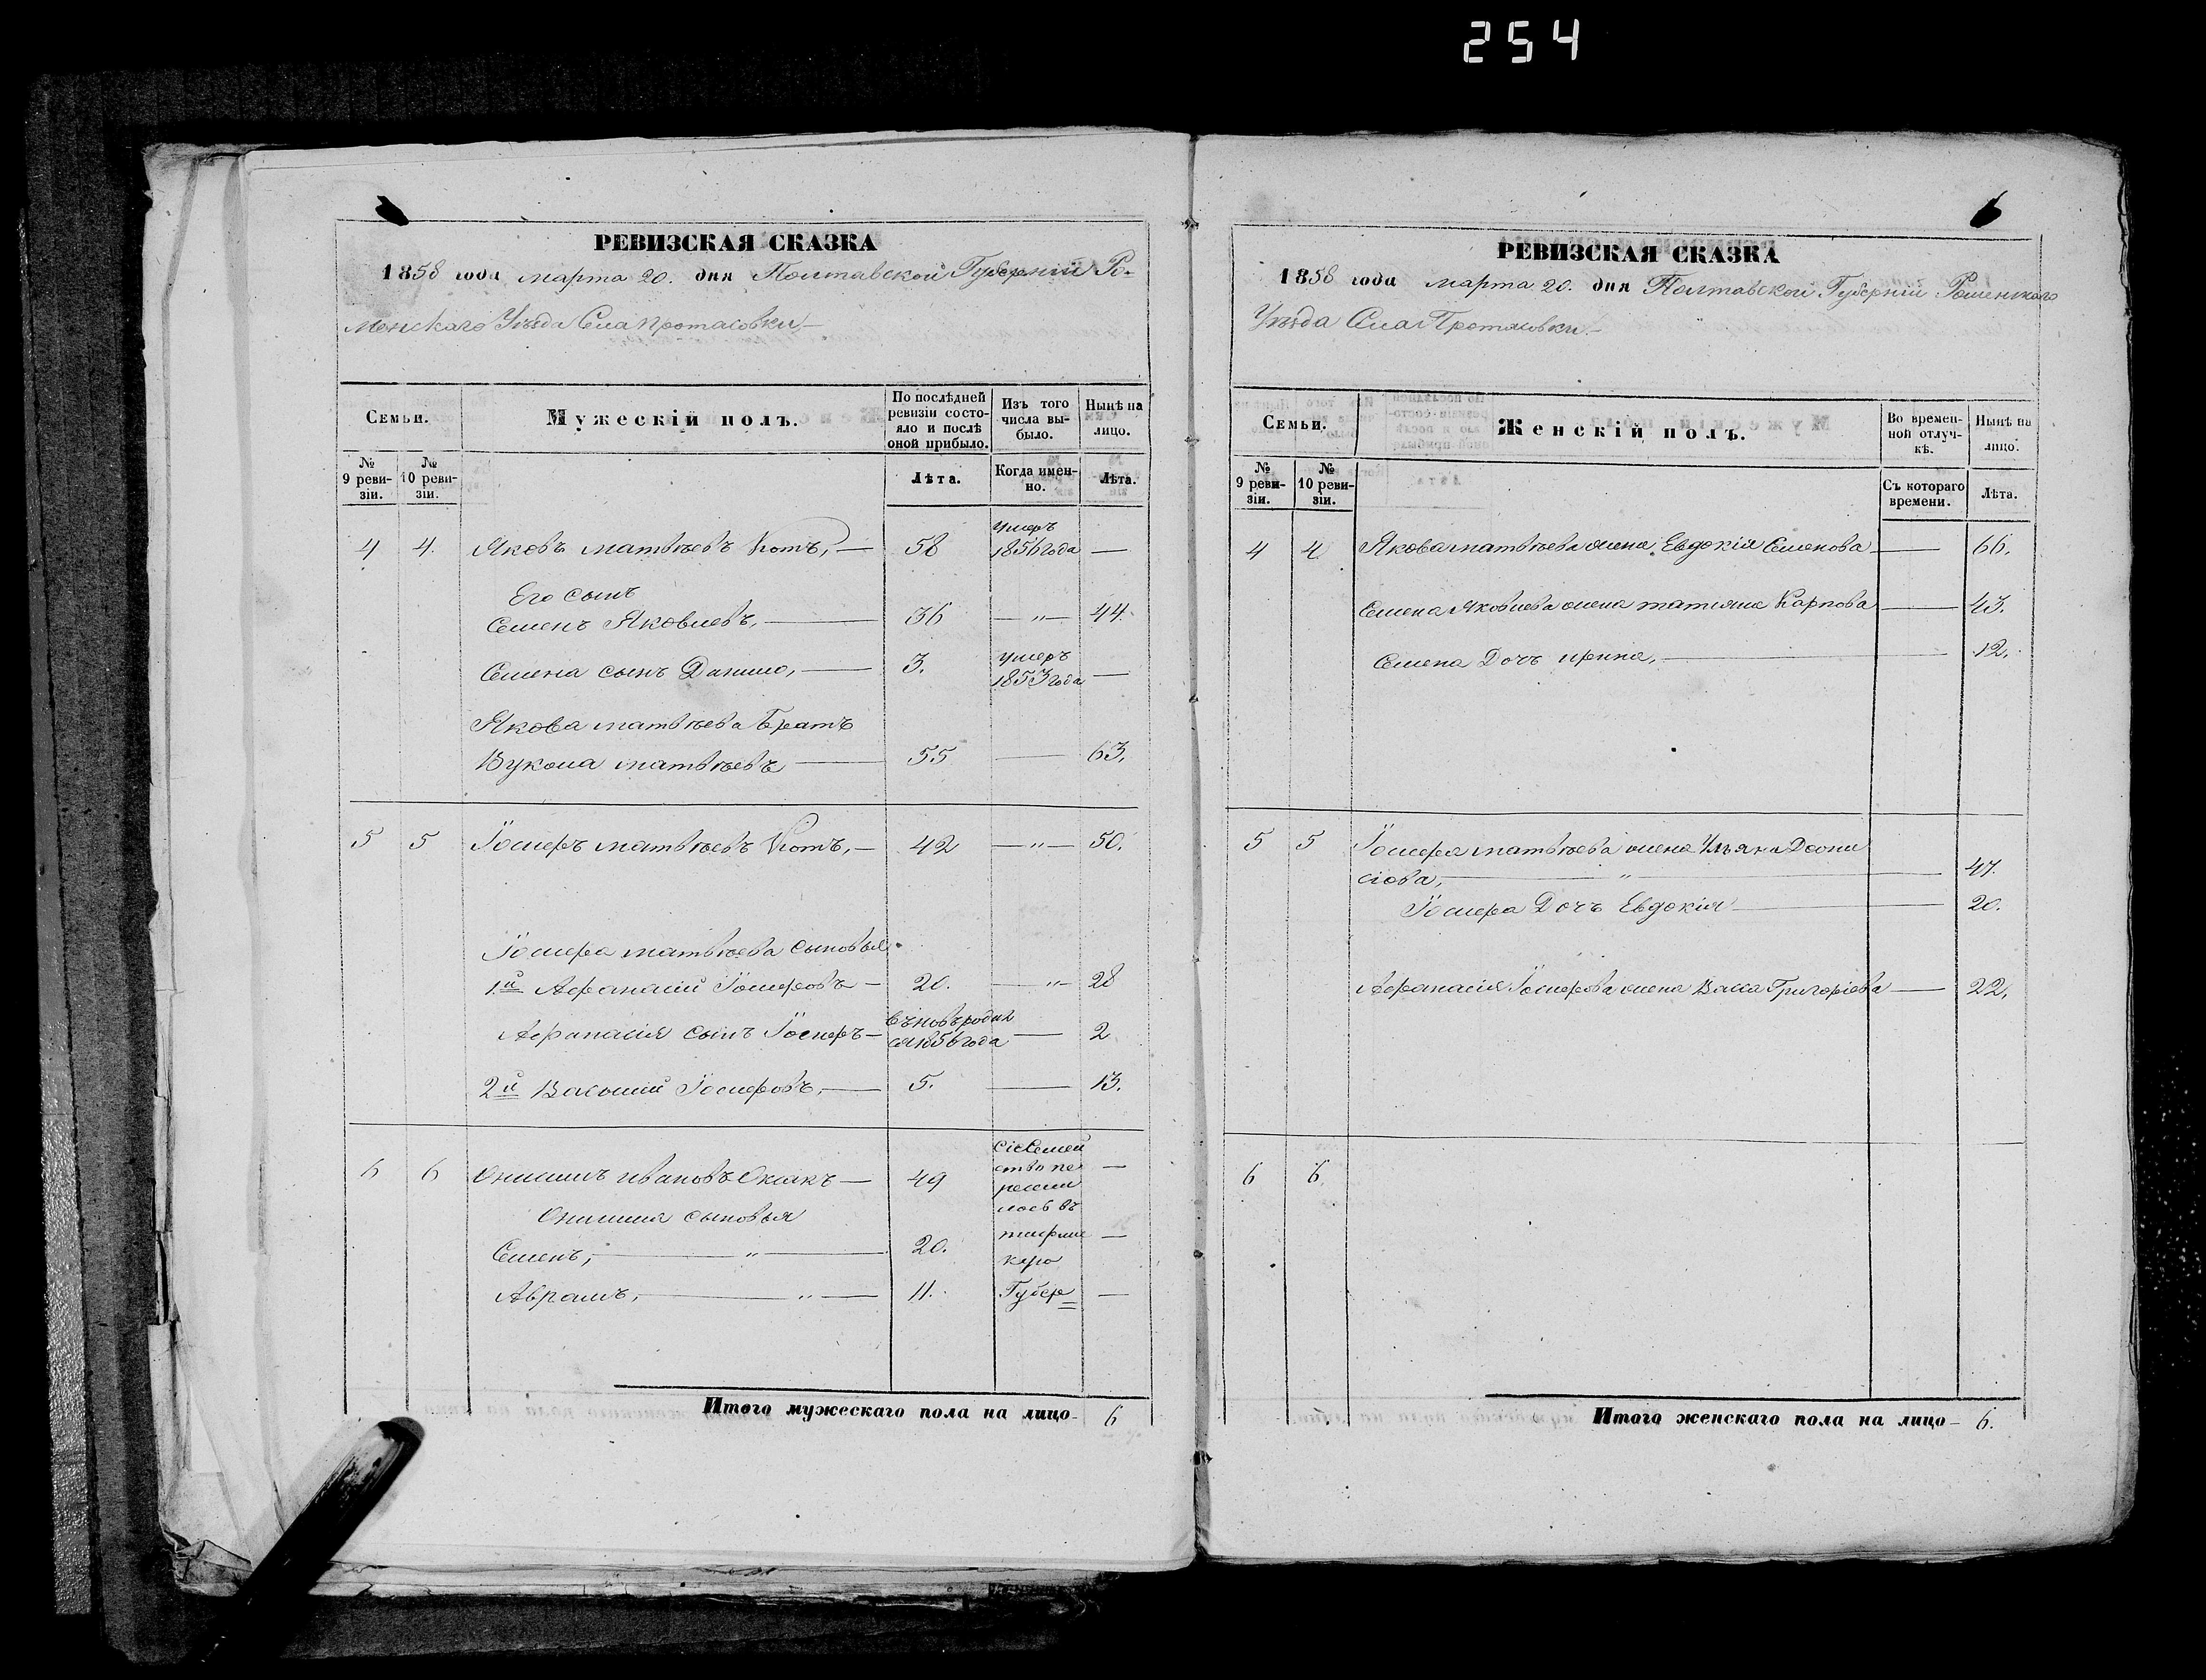 254
РЕВИЗСКАЯ СКАЗКА
1858 года марта 20. дня Полтавской Губерніи Ро-
менскаго Уѣзда Села Протасовки
Семьи.
Мужескій полъ.
По послѣдней ревизіи состояло и послѣ оной прибыло.
Изъ того числа выбыло.
Нынѣ на лицо.
№ 9 ревизіи.
№ 10 ревизіи.
Лѣта.
Когда именно.
Лѣта.
умеръ
4 4. Яковъ Матвѣевъ Котъ, — 58 1856 года —
Его сынъ
Семенъ Яковлевъ, — 36 — „ — 44.
умеръ
Семена сынъ Данило, — 3. 1853 года —
Якова Матвѣева Братъ
Вукола Матвѣевъ — 55 — 63.
5 5 Іосифъ Матвѣевъ Котъ, — 42 — „ — 50.
Іосифа Матвѣева сыновья
1й Афанасій Іосифовъ — 20. — „ — 28
Афанасія сынъ Іосифъ — вновь родился 1856 года — 2
2й Василий Іосифовъ, — 5. — 13.
6 6 Онисимъ Ивановъ — 49
Сіе семей
ство пе
ресели
лось въ
Онисима сыновья
Семенъ, — „ — 20. —
Аврамъ, — „ — 11. Губер —
Итого мужескаго пола на лицо - 6
6
РЕВИЗСКАЯ СКАЗКА
1858 года марта 20. дня Полтавской Губерніи Роменскаго
Уѣзда Села Протасовки
Семьи.
Женскій полъ.
Во временной отлучкѣ.
Нынѣ на лицо.
№ 9 ревизіи.
№ 10 ревизіи.
Съ котораго времени.
Лѣта.
4 4 Якова Матвѣева жена Евдокія Семенова — 66.
Семена Яковлева жена Татияна Карпова — 43.
Семена Дочъ Ирина, — 12.
5 5 Іосифа Матвѣева жена Ульяна Деони
сіова, — „ — 47.
Іосифа Дочъ Евдокія — 20.
Афанасія Іосифова жена Васса Григоріева — 22.
6 6
Итого женскаго пола на лицо - 6.